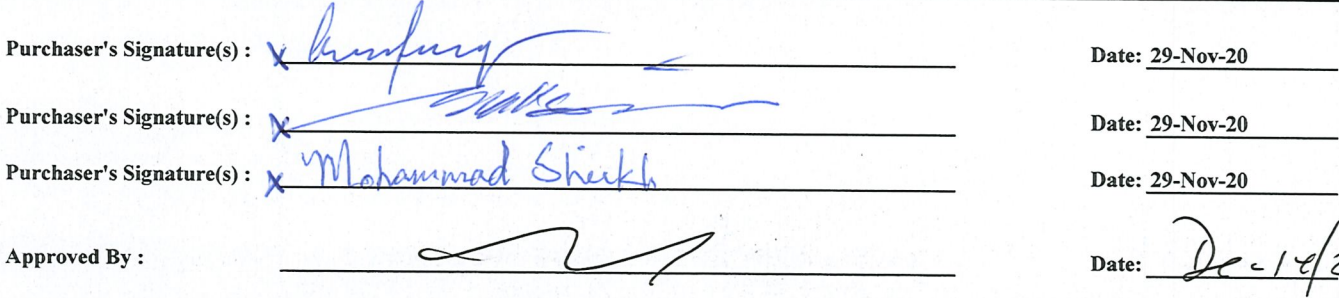 Purchaser's Signature(s) : X Date: 29-Nov-20
Purchaser's Signature(s) : X Date: 29-Nov-20
Purchaser's Signature(s) : X Mohammad Sheikh Date: 29-Nov-20
Approved By : Date: